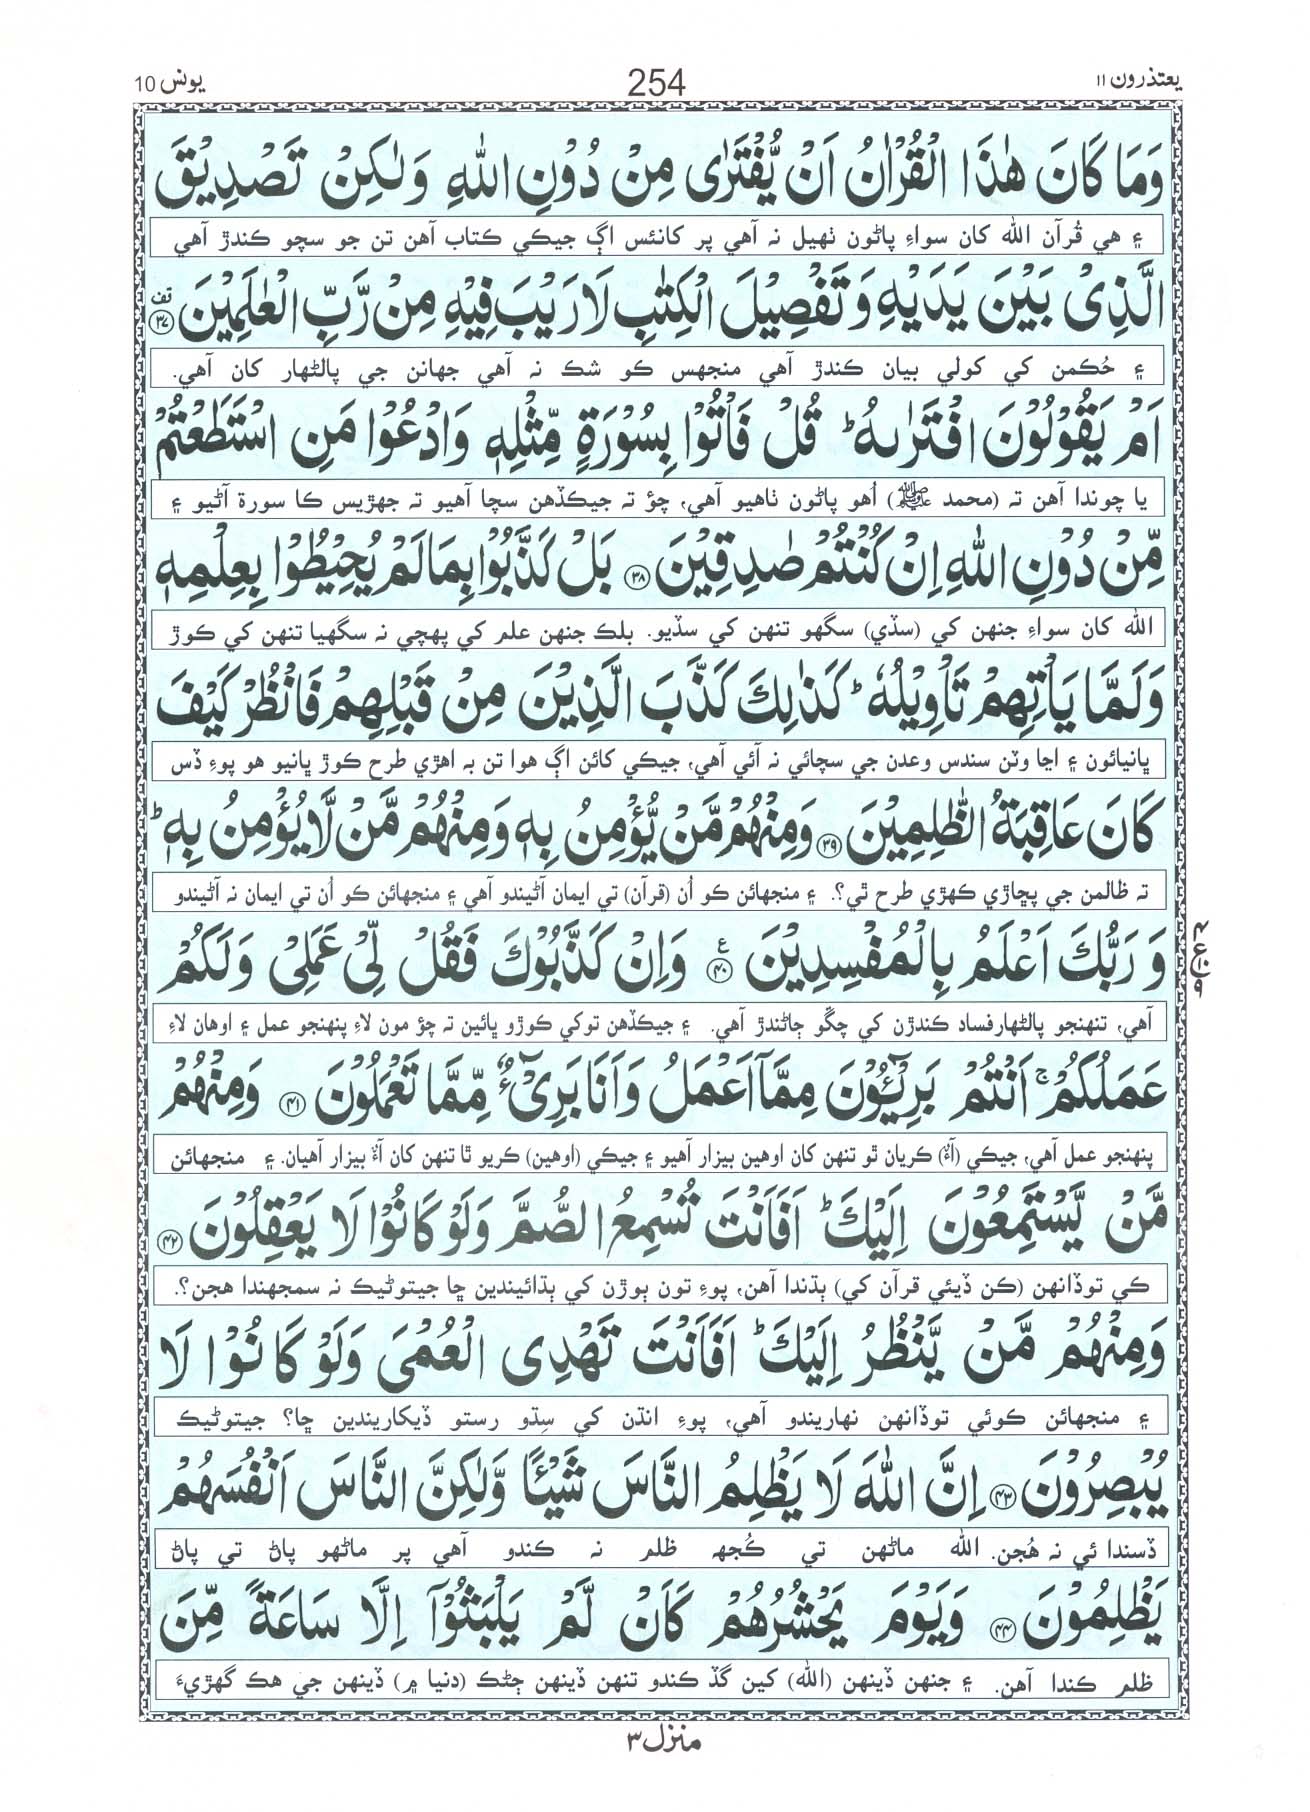 يعتذرون ۱۱
254
يونس 10
وَمَا كَانَ هٰذَا الْقُرْاٰنُ اَنْ يُّفْتَرٰى مِنْ دُوْنِ اللّٰهِ وَلٰكِنْ تَصْدِيْقَ
۽ هي قُرآن الله کان سواءِ پاڻون ٺهيل نہ آهي پر کانئس اڳ جيڪي ڪتاب آهن تن جو سچو ڪندڙ آهي
الَّذِىْ بَيْنَ يَدَيْهِ وَتَفْصِيْلَ الْكِتٰبِ لَا رَيْبَ فِيْهِ مِنْ رَّبِّ الْعٰلَمِيْنَ ۳۷ تف
۽ حُڪمن کي کولي بيان ڪندڙ آهي منجهس ڪو شڪ نہ آهي جهانن جي پالڻهار کان آهي.
اَمْ يَقُوْلُوْنَ افْتَرٰىهُ ؕ قُلْ فَاْتُوْا بِسُوْرَةٍ مِّثْلِهٖ وَادْعُوْا مَنِ اسْتَطَعْتُمْ
يا چوندا آهن تہ (محمد ﷺ) اُهو پاڻون ٺاهيو آهي، چؤ تہ جيڪڏهن سچا آهيو تہ جهڙيس ڪا سورة آڻيو ۽
مِّنْ دُوْنِ اللّٰهِ اِنْ كُنْتُمْ صٰدِقِيْنَ ۳۸ بَلْ كَذَّبُوْا بِمَا لَمْ يُحِيْطُوْا بِعِلْمِهٖ
الله کان سواءِ جنهن کي (سڏي) سگهو تنهن کي سڏيو. بلڪ جنهن علم کي پهچي نہ سگهيا تنهن کي ڪوڙ
وَلَمَّا يَاْتِهِمْ تَاْوِيْلُهٗ ؕ كَذٰلِكَ كَذَّبَ الَّذِيْنَ مِنْ قَبْلِهِمْ فَانْظُرْ كَيْفَ
ڀانيائون ۽ اڃا وٽن سندس وعدن جي سچائي نہ آئي آهي، جيڪي کائن اڳ هوا تن بہ اهڙي طرح ڪوڙ ڀانيو هو پوءِ ڏس
كَانَ عَاقِبَةُ الظّٰلِمِيْنَ ۳۹ وَمِنْهُمْ مَّنْ يُّؤْمِنُ بِهٖ وَمِنْهُمْ مَّنْ لَّا يُؤْمِنُ بِهٖ ؕ
تہ ظالمن جي پڇاڙي ڪهڙي طرح ٿي؟. ۽ منجهائن ڪو اُن (قرآن) تي ايمان آڻيندو آهي ۽ منجهائن ڪو اُن تي ايمان نہ آڻيندو
وَرَبُّكَ اَعْلَمُ بِالْمُفْسِدِيْنَ ۴۰ ع وَاِنْ كَذَّبُوْكَ فَقُلْ لِّىْ عَمَلِىْ وَلَكُمْ
آهي، تنهنجو پالڻهارفساد ڪندڙن کي چڱو ڄاڻندڙ آهي. ۽ جيڪڏهن توکي ڪوڙو ڀائين تہ چؤ مون لاءِ پنهنجو عمل ۽ اوهان لاءِ
عَمَلُكُمْ ۚ اَنْتُمْ بَرِيْٓــُٔوْنَ مِمَّاۤ اَعْمَلُ وَاَنَا بَرِىْٓءٌ مِّمَّا تَعْمَلُوْنَ ۴۱ وَمِنْهُمْ
پنهنجو عمل آهي، جيڪي (آءٌ) ڪريان ٿو تنهن کان اوهين بيزار آهيو ۽ جيڪي (اوهين) ڪريو ٿا تنهن کان آءٌ بيزار آهيان. ۽ منجهائن
مَّنْ يَّسْتَمِعُوْنَ اِلَيْكَ ؕ اَفَاَنْتَ تُسْمِعُ الصُّمَّ وَلَوْ كَانُوْا لَا يَعْقِلُوْنَ ۴۲
ڪي توڏانهن (ڪن ڏيئي قرآن کي) ٻڌندا آهن، پوءِ تون ٻوڙن کي ٻڌائيندين ڇا جيتوڻيڪ نہ سمجهندا هجن؟.
وَمِنْهُمْ مَّنْ يَّنْظُرُ اِلَيْكَ ؕ اَفَاَنْتَ تَهْدِى الْعُمْىَ وَلَوْ كَانُوْا لَا
۽ منجهائن ڪوئي توڏانهن نهاريندو آهي، پوءِ انڌن کي سِڌو رستو ڏيکاريندين ڇا؟ جيتوڻيڪ
يُبْصِرُوْنَ ۴۳ اِنَّ اللّٰهَ لَا يَظْلِمُ النَّاسَ شَيْـًٔا وَّلٰكِنَّ النَّاسَ اَنْفُسَهُمْ
ڏسندا ئي نہ هُجن. الله ماڻهن تي ڪُجهہ ظلم نہ ڪندو آهي پر ماڻهو پاڻ تي پاڻ
يَظْلِمُوْنَ ۴۴ وَيَوْمَ يَحْشُرُهُمْ كَاَنْ لَّمْ يَلْبَثُوْۤا اِلَّا سَاعَةً مِّنَ
ظلم ڪندا آهن. ۽ جنهن ڏينهن (الله) کين گڏ ڪندو تنهن ڏينهن ڄڻڪ (دنيا ۾) ڏينهن جي هڪ گهڙيءَ
منزل ۳